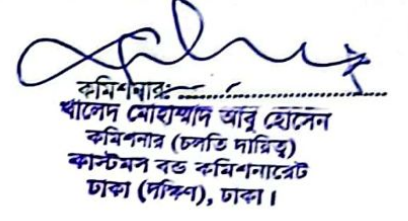 কমিশনারঃ
খালেদ মোহাম্মাদ আবু হোসেন
কমিশনার (চলতি দায়িত্ব)
কাস্টমস বন্ড কমিশনারেট
ঢাকা (দক্ষিণ), ঢাকা।